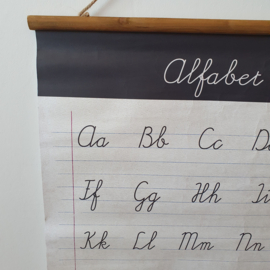 Alfabet
Aa Bb Cc D
Ff Gg Hh Ii
Kk Ll Mm Nn